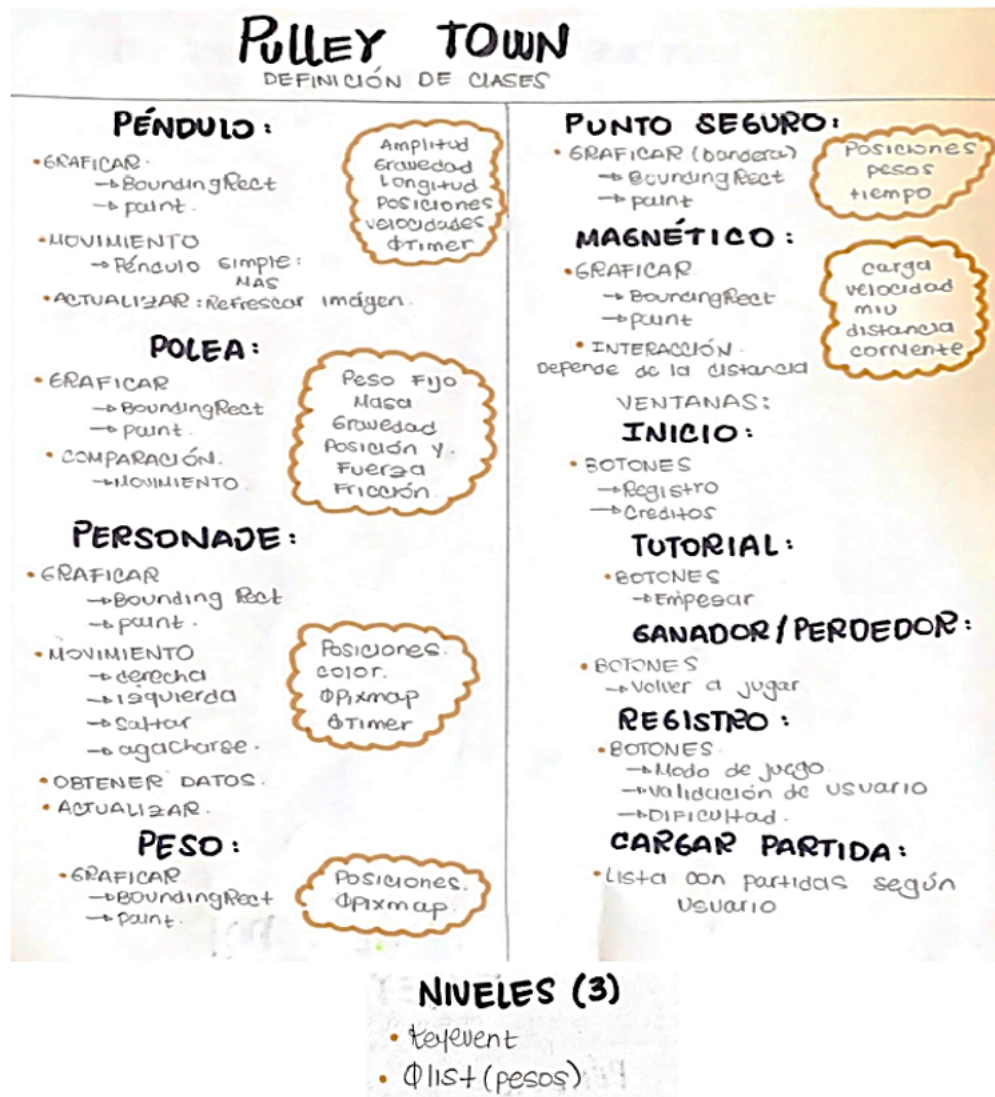 PULLEY TOWN
DEFINICIÓN DE CLASES
PÉNDULO:
•GRAFICAR.
→BoundingRect
→paint.
•MOVIMIENTO
→Péndulo simple:
MAS
•ACTUALIZAR: Refrescar imágen.
Amplitud
Gravedad
Longitud
Posiciones
velocidades
QTimer
POLEA:
•GRAFICAR
→BoundingRect
→paint.
•COMPARACIÓN.
→MOVIMIENTO.
Peso Fijo
Masa
Gravedad
Posición Y.
Fuerza
Fricción.
PERSONAJE:
•GRAFICAR
→Bounding Rect
→paint.
•MOVIMIENTO
→derecha
→izquierda
→Saltar
→agacharse.
•OBTENER DATOS.
•ACTUALIZAR.
Posiciones.
color.
QPixmap
QTimer
PESO:
•GRAFICAR
→BoundingRect
→paint.
Posiciones.
QPixmap.
PUNTO SEGURO:
•GRAFICAR (bandera)
→BoundingRect
→paint
Posiciones
pesos
tiempo
MAGNÉTICO:
•GRAFICAR
→BoundingRect
→paint
•INTERACCIÓN.
Depende de la distancia
carga
velocidad
miu
distancia
corriente
VENTANAS:
INICIO:
•BOTONES
→Registro
→Creditos
TUTORIAL:
•BOTONES
→Empesar
GANADOR/PERDEDOR:
•BOTONES
→Volver a jugar
REGISTRO:
•BOTONES.
→Modo de juego.
→validación de usuario
→DIFICUltad.
CARGAR PARTIDA:
•Lista con partidas según
usuario
NIVELES (3)
•Keyevent
•Qlist(pesos)